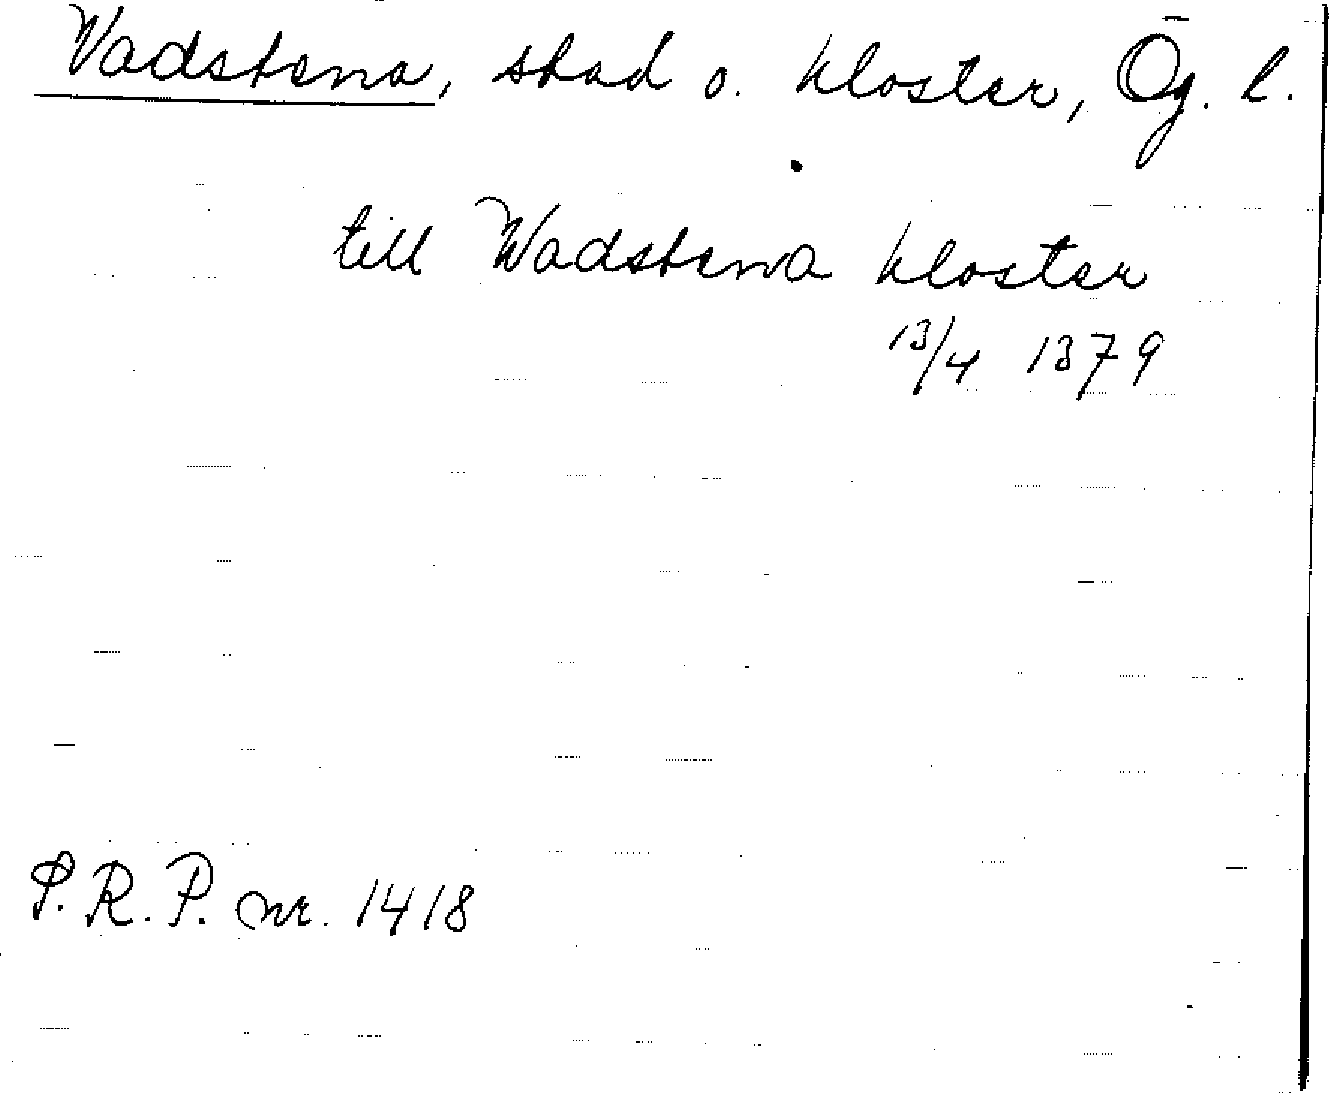 Vadstena, stad o. kloster, Ög. l.
till Wadstena kloster
13/4 1379
S.R.P. nr. 1418